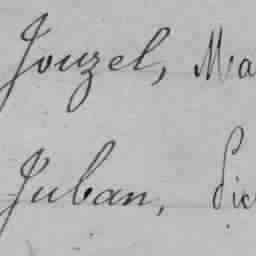 Jouzel, Ma
Juban, Pie